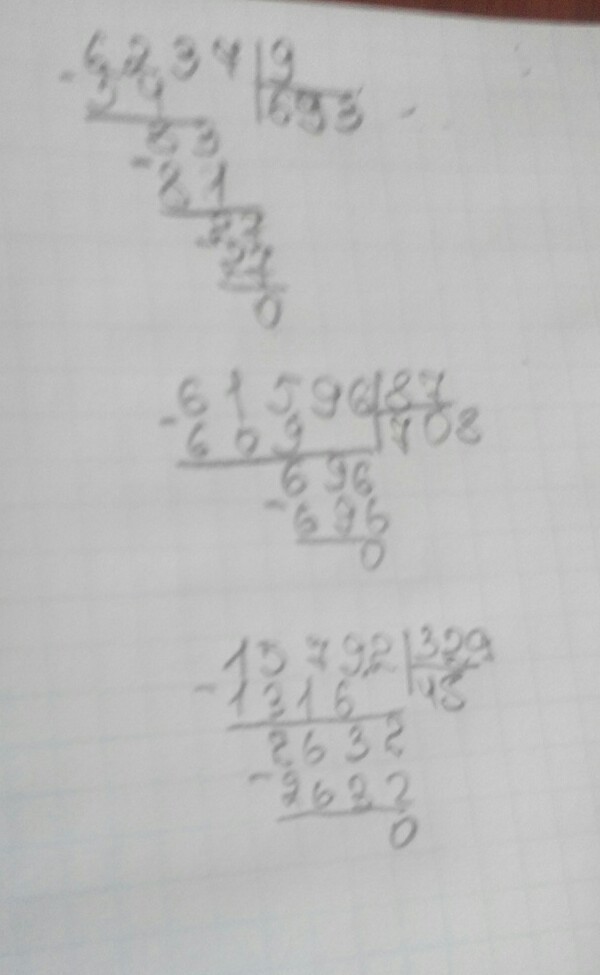 6237 9
- 54 693
83
- 81
27
27
0
61596 87
- 609 708
696
- 696
0
15792 329
- 1316 48
2632
- 2632
0